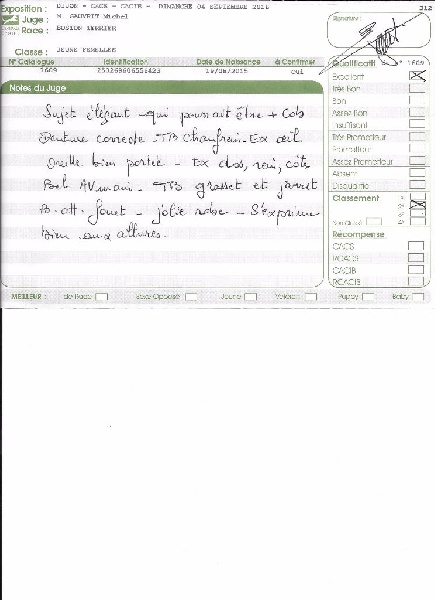 Exposition : DIJON - CACS - CACIB - DIMANCHE 04 SEPTEMBRE 2016
312
Juge : M. GAUVRIT Michel
Signature :
Race : BOSTON TERRIER
Classe : JEUNE FEMELLES
N° Catalogue Identification Date de Naissance à Confirmer
1609 250269606556423 19/08/2015 oui
Qualificatif N° 1609
Notes du Juge
Sujet élégant - qui pourrait être + Cob
Denture correcte - TB Chanfrein - Ex œil
Oreille bien portée - Ex dos, rein, côte
Bel AV main - TB grasset et jarret
B. att. fouet - jolie robe - S'exprime
bien aux allures.
Excellent
Très Bon
Bon
Assez Bon
Insuffisant
Très Prometteur
Prometteur
Assez Prometteur
Absent
Disqualifié
Classement
Non Classé
Récompense
CACS
RCACS
CACIB
RCACIB
MEILLEUR : de Race Sexe Opposé Jeune Vétéran Puppy Baby